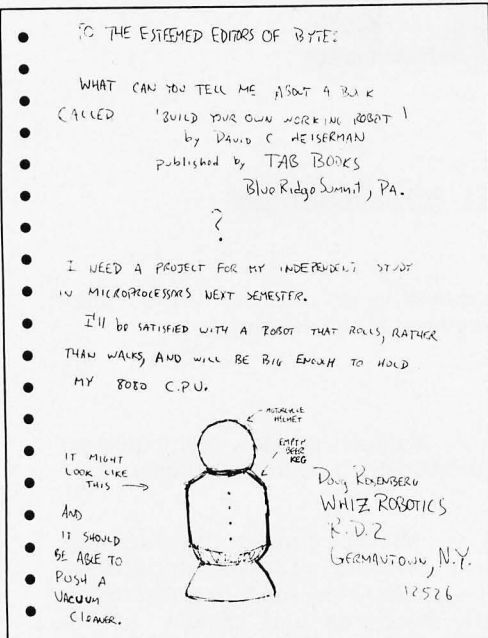 TO THE ESTEEMED EDITORS OF BYTE:
WHAT CAN YOU TELL ME ABOUT A BOOK
CALLED 'BUILD YOUR OWN WORKING ROBOT'
by DAVID C HEISERMAN
published by TAB BOOKS
Blue Ridge Summit, PA.
?
I NEED A PROJECT FOR MY INDEPENDENT STUDY
IN MICROPROCESSORS NEXT SEMESTER.
I'll be SATISFIED WITH A ROBOT THAT ROLLS, RATHER
THAN WALKS, AND WILL BE BIG ENOUGH TO HOLD
MY 8080 C.P.U.
MOTORCYCLE
HELMET
EMPTY
BEER
KEG
IT MIGHT
LOOK LIKE
THIS
AND
IT SHOULD
BE ABLE TO
PUSH A
VACUUM
CLEANER.
Doug Rosenberg
WHIZ ROBOTICS
R.D.2
GERMANTOWN, N.Y.
12526